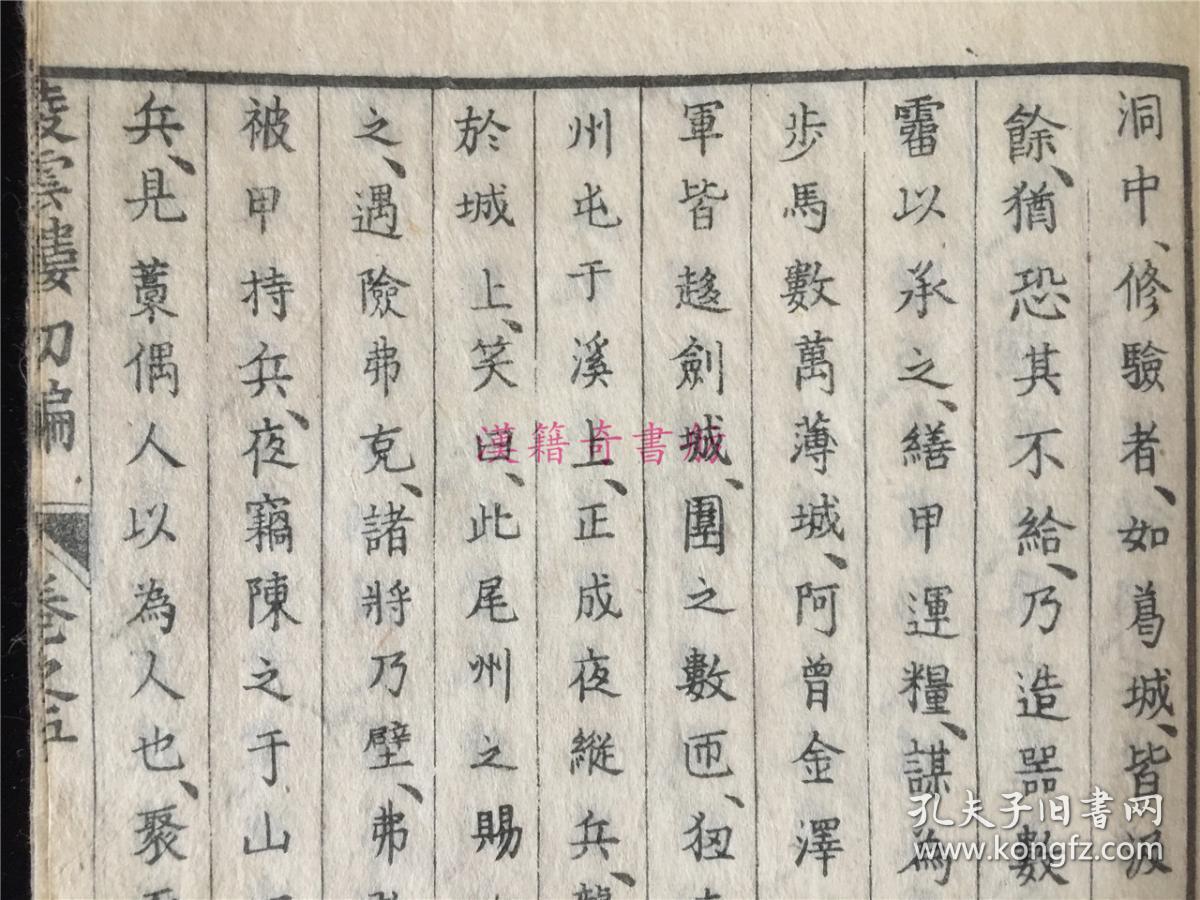 洞中、修驗者、如葛城、皆汲
餘、猶恐其不給、乃造器數
霤以承之、繕甲運糧、謀為
步馬數萬薄城、阿曾金澤
軍皆趍劍城、圍之數匝、狃
州屯于溪上、正成夜縱兵、龍
於城上、笑曰、此尾州之賜
之、遇險弗克、諸將乃壁、弗
被甲持兵、夜竊陳之于山
兵、見藁偶人以為人也、聚
凌雲樓初編 卷之五
漢籍奇書
孔夫子旧书网
www.kongfz.com